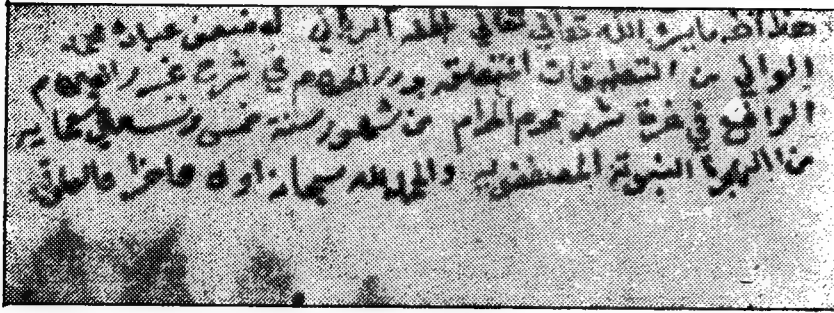 هذا آخر ما يسر الله تعالى لطفه الرباني لاضعف عباده محمد
الواني من التعليقات المتعلقة بدرر الحكام في شرح غرر الاحكام
الواقع في غرة شهر محرم الحرام من شهور سنة خمس وتسعين
من الهجرة النبوية المصطفوية والحمد لله سبحانه اولا وآخرا